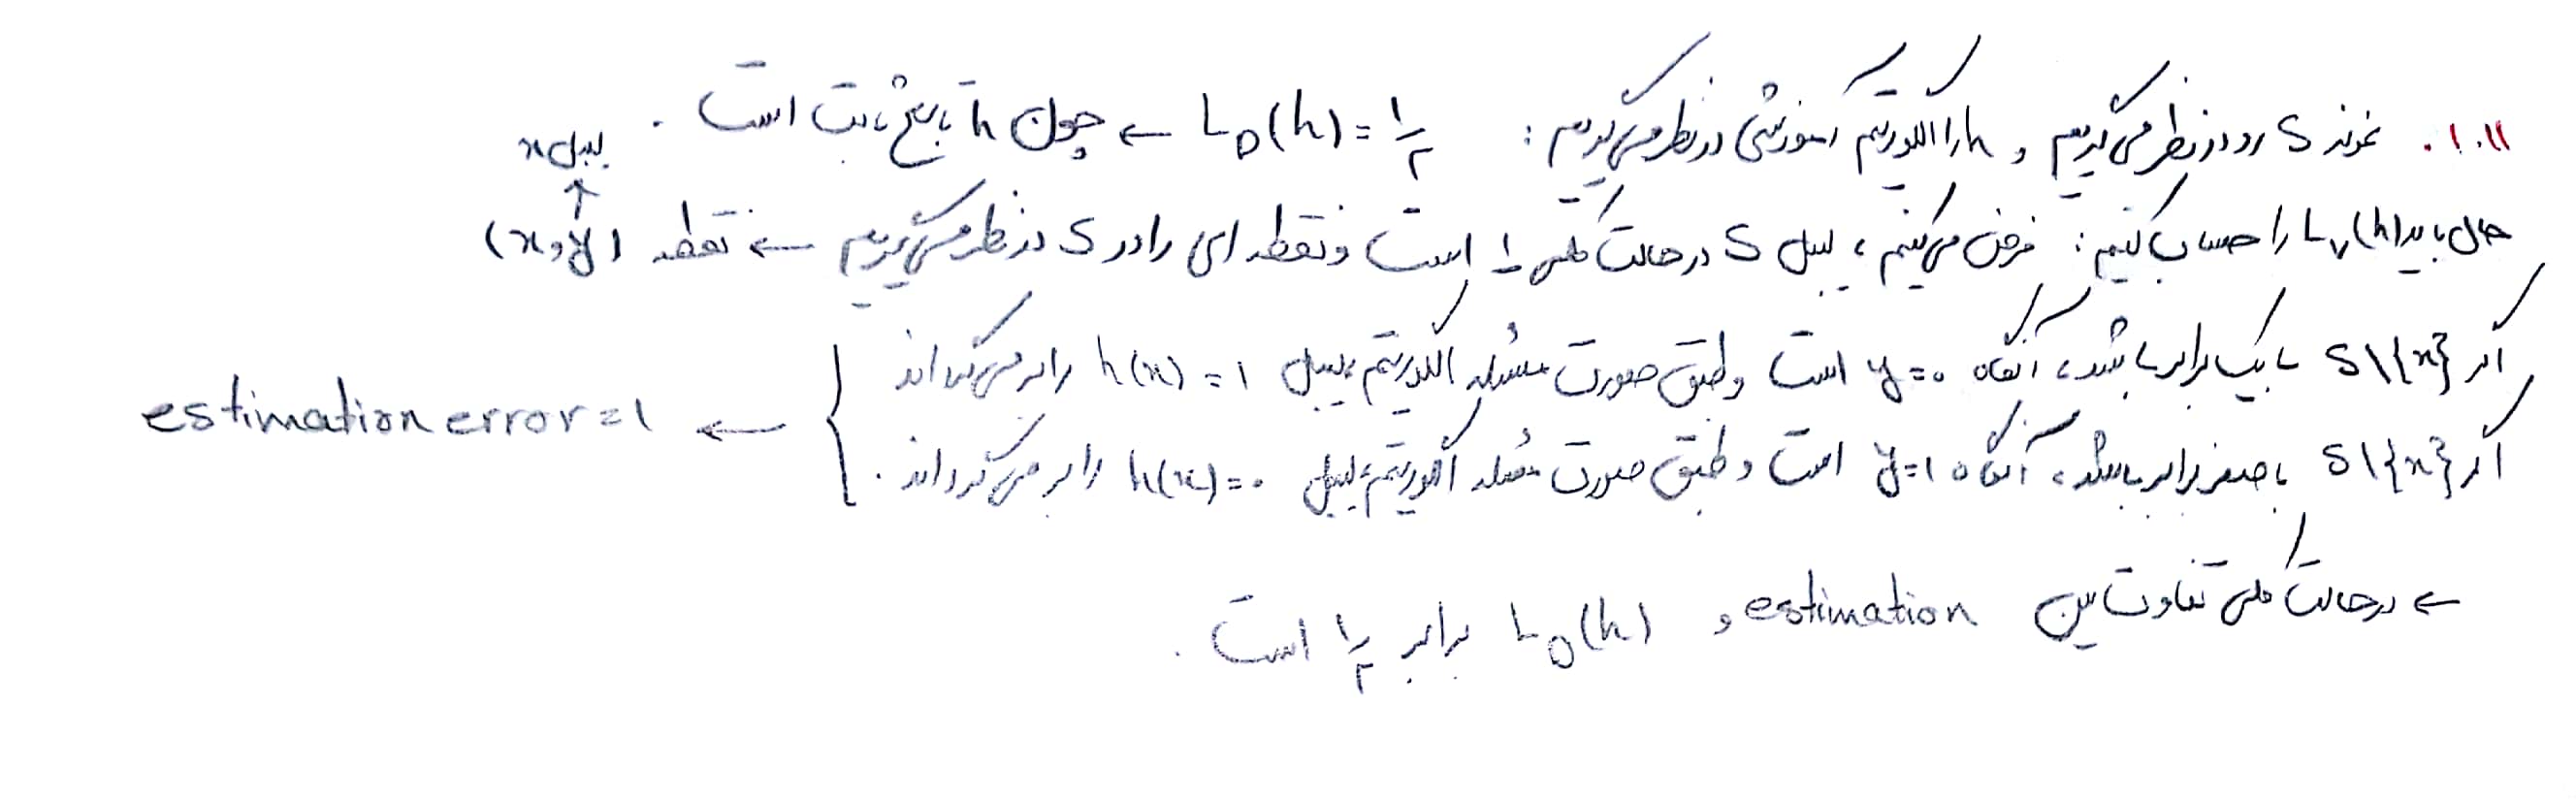 ۱.۱۱. نمونه S رو در نظر می‌گیریم و h را الگوریتم آموزشی در نظر می‌گیریم: L_D(h) = ۱/۲ ← چون h تابع ثابت است.
لیبل x
↑
حال باید L_V(h) را حساب کنیم: فرض می‌کنیم، لیبل S در حالت کلی ۱ است و نقطه ای را در S در نظر می‌گیریم ← نقطه (x,y)
اگر S\{x} با یک برابر باشد، آنگاه y=۰ است و طبق صورت مسئله الگوریتم لیبل h(x) = ۱ را برمی‌گرداند
estimation error = ۱ ←
اگر S\{x} با صفر برابر باشد، آنگاه y=۱ است و طبق صورت مسئله الگوریتم لیبل h(x)=۰ را برمی‌گرداند.
← در حالت کلی تفاوت بین estimation و L_D(h) برابر ۱/۲ است.